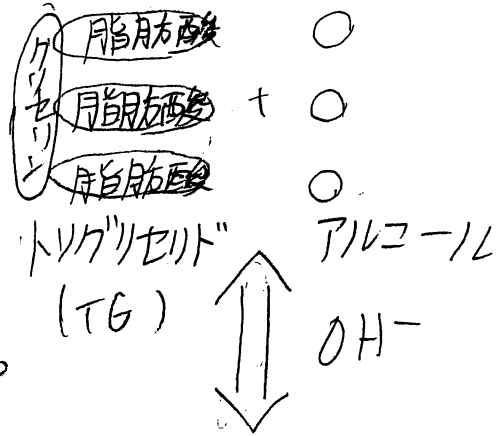 グリセリン
脂肪酸
脂肪酸 +
脂肪酸
トリグリセリド アルコール
(TG)
OH⁻